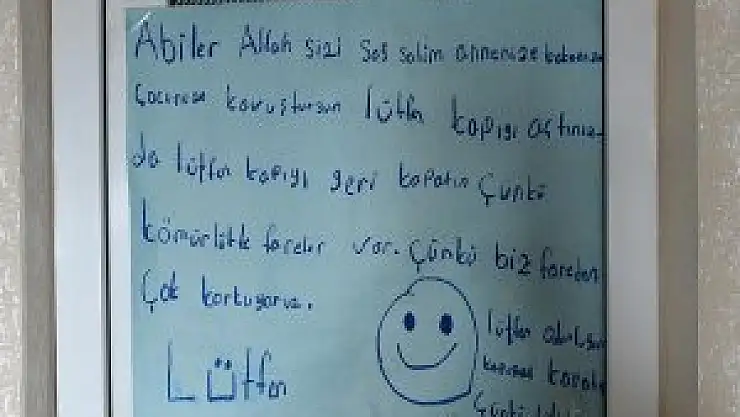 Abiler Allah sizi sağ salim annenize babanıza
Çocunuza kavuştursun lütfn kapıyı açtınız
da lütfn kapıyı geri kapatın Çünkü
kömürlükte fareler var. Çünkü biz fareden
Çok korkuyoruz.
Lütfn
lütfen
kapısını kapatı
Çünkü